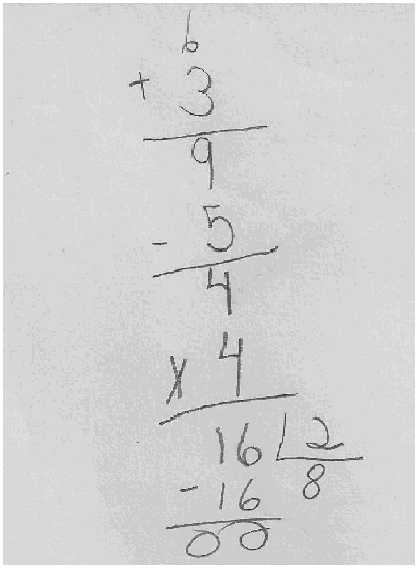 6
+ 3
9
- 5
4
x 4
16 2
- 16 8
00